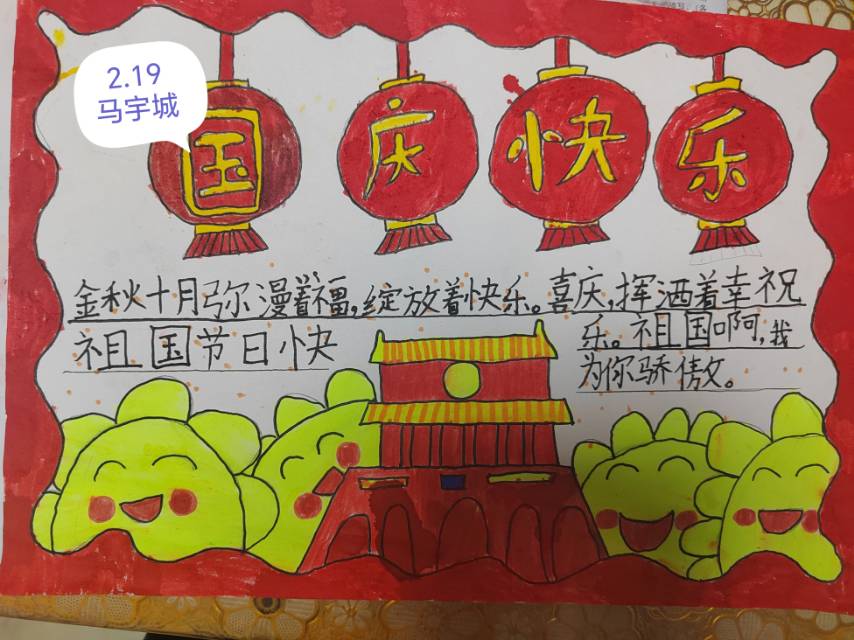 2.19
马宇城
国庆快乐
金秋十月弥漫着福,绽放着快乐。喜庆,挥洒着幸祝
祖国节日快
乐。祖国啊,我
为你骄傲。